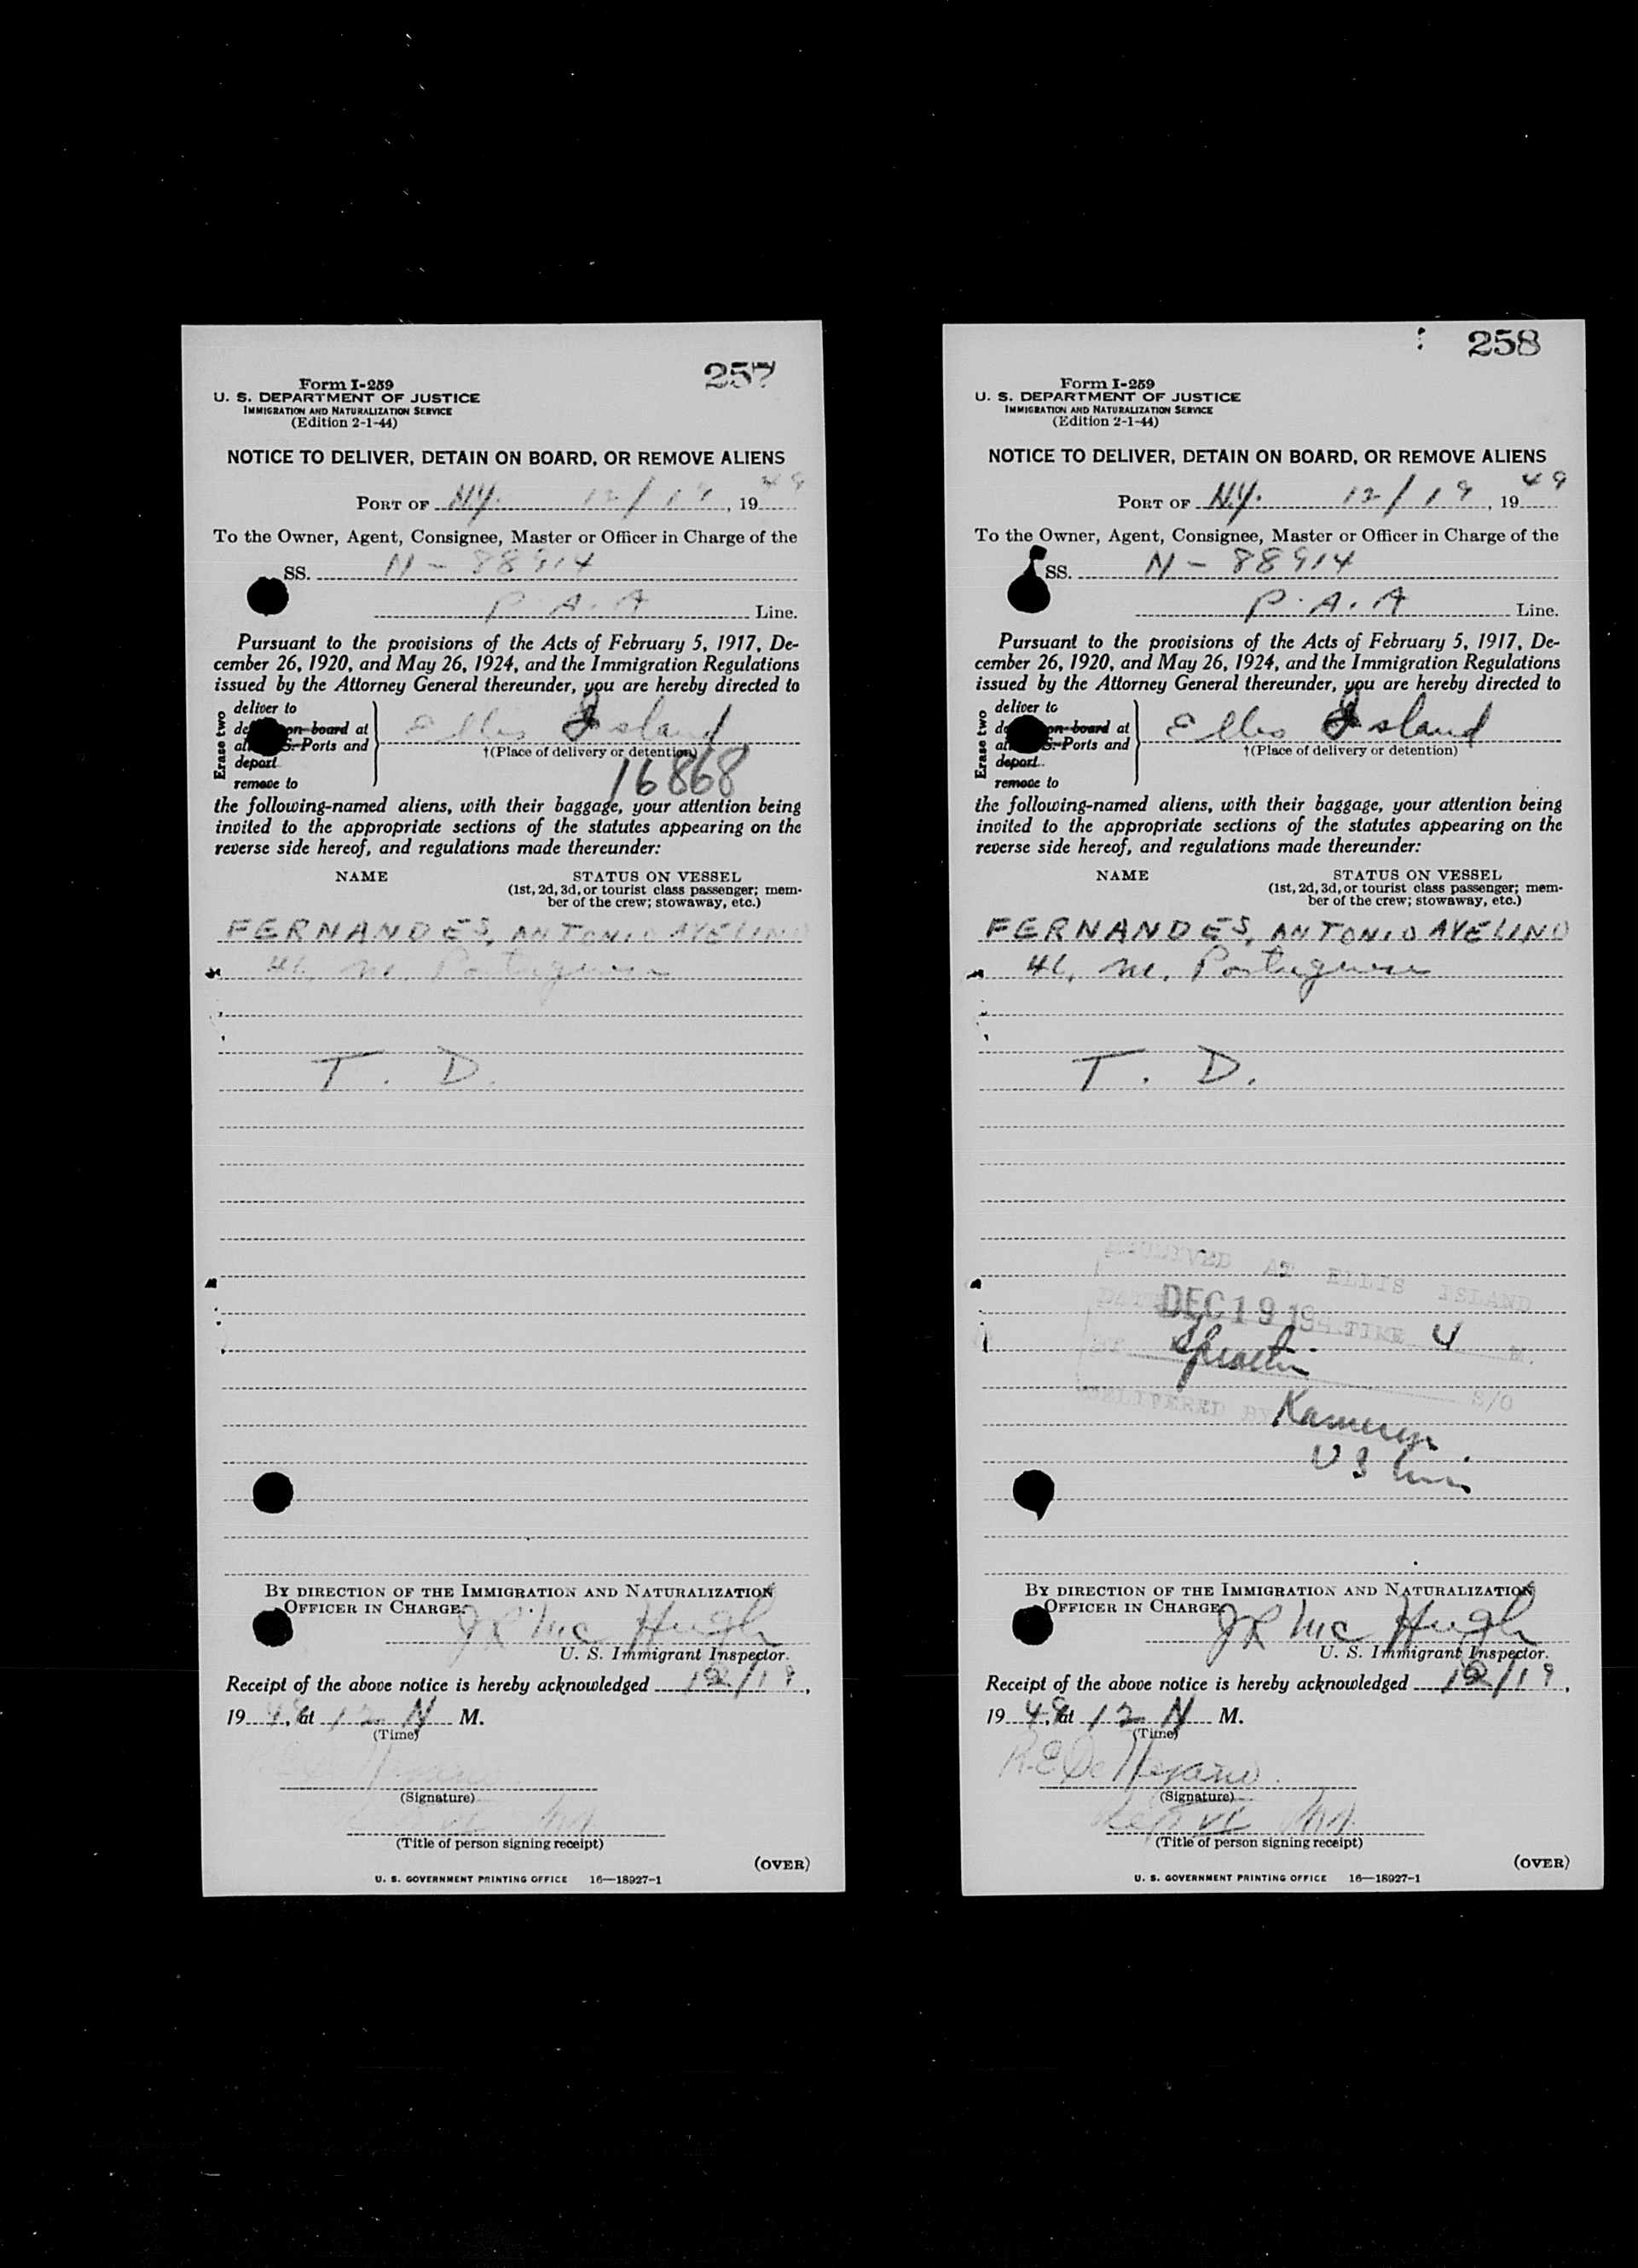 257
Form I-259
U. S. DEPARTMENT OF JUSTICE
IMMIGRATION AND NATURALIZATION SERVICE
(Edition 2-1-44)
NOTICE TO DELIVER, DETAIN ON BOARD, OR REMOVE ALIENS
PORT OF N.Y. 12/19, 1949
To the Owner, Agent, Consignee, Master or Officer in Charge of the
SS. N-88914
P.A.A Line.
Pursuant to the provisions of the Acts of February 5, 1917, De-
cember 26, 1920, and May 26, 1924, and the Immigration Regulations
issued by the Attorney General thereunder, you are hereby directed to
Erase two
deliver to
on board at
Ports and
deport
remove to
Ellis Island
†(Place of delivery or detention)
16868
the following-named aliens, with their baggage, your attention being
invited to the appropriate sections of the statutes appearing on the
reverse side hereof, and regulations made thereunder:
NAME STATUS ON VESSEL
(1st, 2d, 3d, or tourist class passenger; mem-
ber of the crew; stowaway, etc.)
FERNANDES, ANTONIO AVELINO
m. Portuguese
T. D.
BY DIRECTION OF THE IMMIGRATION AND NATURALIZATION
OFFICER IN CHARGE.
JR McHugh
U. S. Immigrant Inspector.
Receipt of the above notice is hereby acknowledged 12/19,
1949, at 12 N M.
(Time)
(Signature)
(Title of person signing receipt)
(OVER)
U. S. GOVERNMENT PRINTING OFFICE 16—18927-1
258
Form I-259
U. S. DEPARTMENT OF JUSTICE
IMMIGRATION AND NATURALIZATION SERVICE
(Edition 2-1-44)
NOTICE TO DELIVER, DETAIN ON BOARD, OR REMOVE ALIENS
PORT OF N.Y. 12/19, 1949
To the Owner, Agent, Consignee, Master or Officer in Charge of the
SS. N-88914
P.A.A Line.
Pursuant to the provisions of the Acts of February 5, 1917, De-
cember 26, 1920, and May 26, 1924, and the Immigration Regulations
issued by the Attorney General thereunder, you are hereby directed to
Erase two
deliver to
on board at
Ports and
deport
remove to
Ellis Island
†(Place of delivery or detention)
the following-named aliens, with their baggage, your attention being
invited to the appropriate sections of the statutes appearing on the
reverse side hereof, and regulations made thereunder:
NAME STATUS ON VESSEL
(1st, 2d, 3d, or tourist class passenger; mem-
ber of the crew; stowaway, etc.)
FERNANDES, ANTONIO AVELINO
m. Portuguese
T. D.
RECEIVED AT ELLIS ISLAND
DATE DEC 19 194 TIME 4 M.
S/O
DELIVERED BY
BY DIRECTION OF THE IMMIGRATION AND NATURALIZATION
OFFICER IN CHARGE.
JR McHugh
U. S. Immigrant Inspector.
Receipt of the above notice is hereby acknowledged 12/19,
1949, at 12 N M.
(Time)
(Signature)
(Title of person signing receipt)
(OVER)
U. S. GOVERNMENT PRINTING OFFICE 16—18927-1